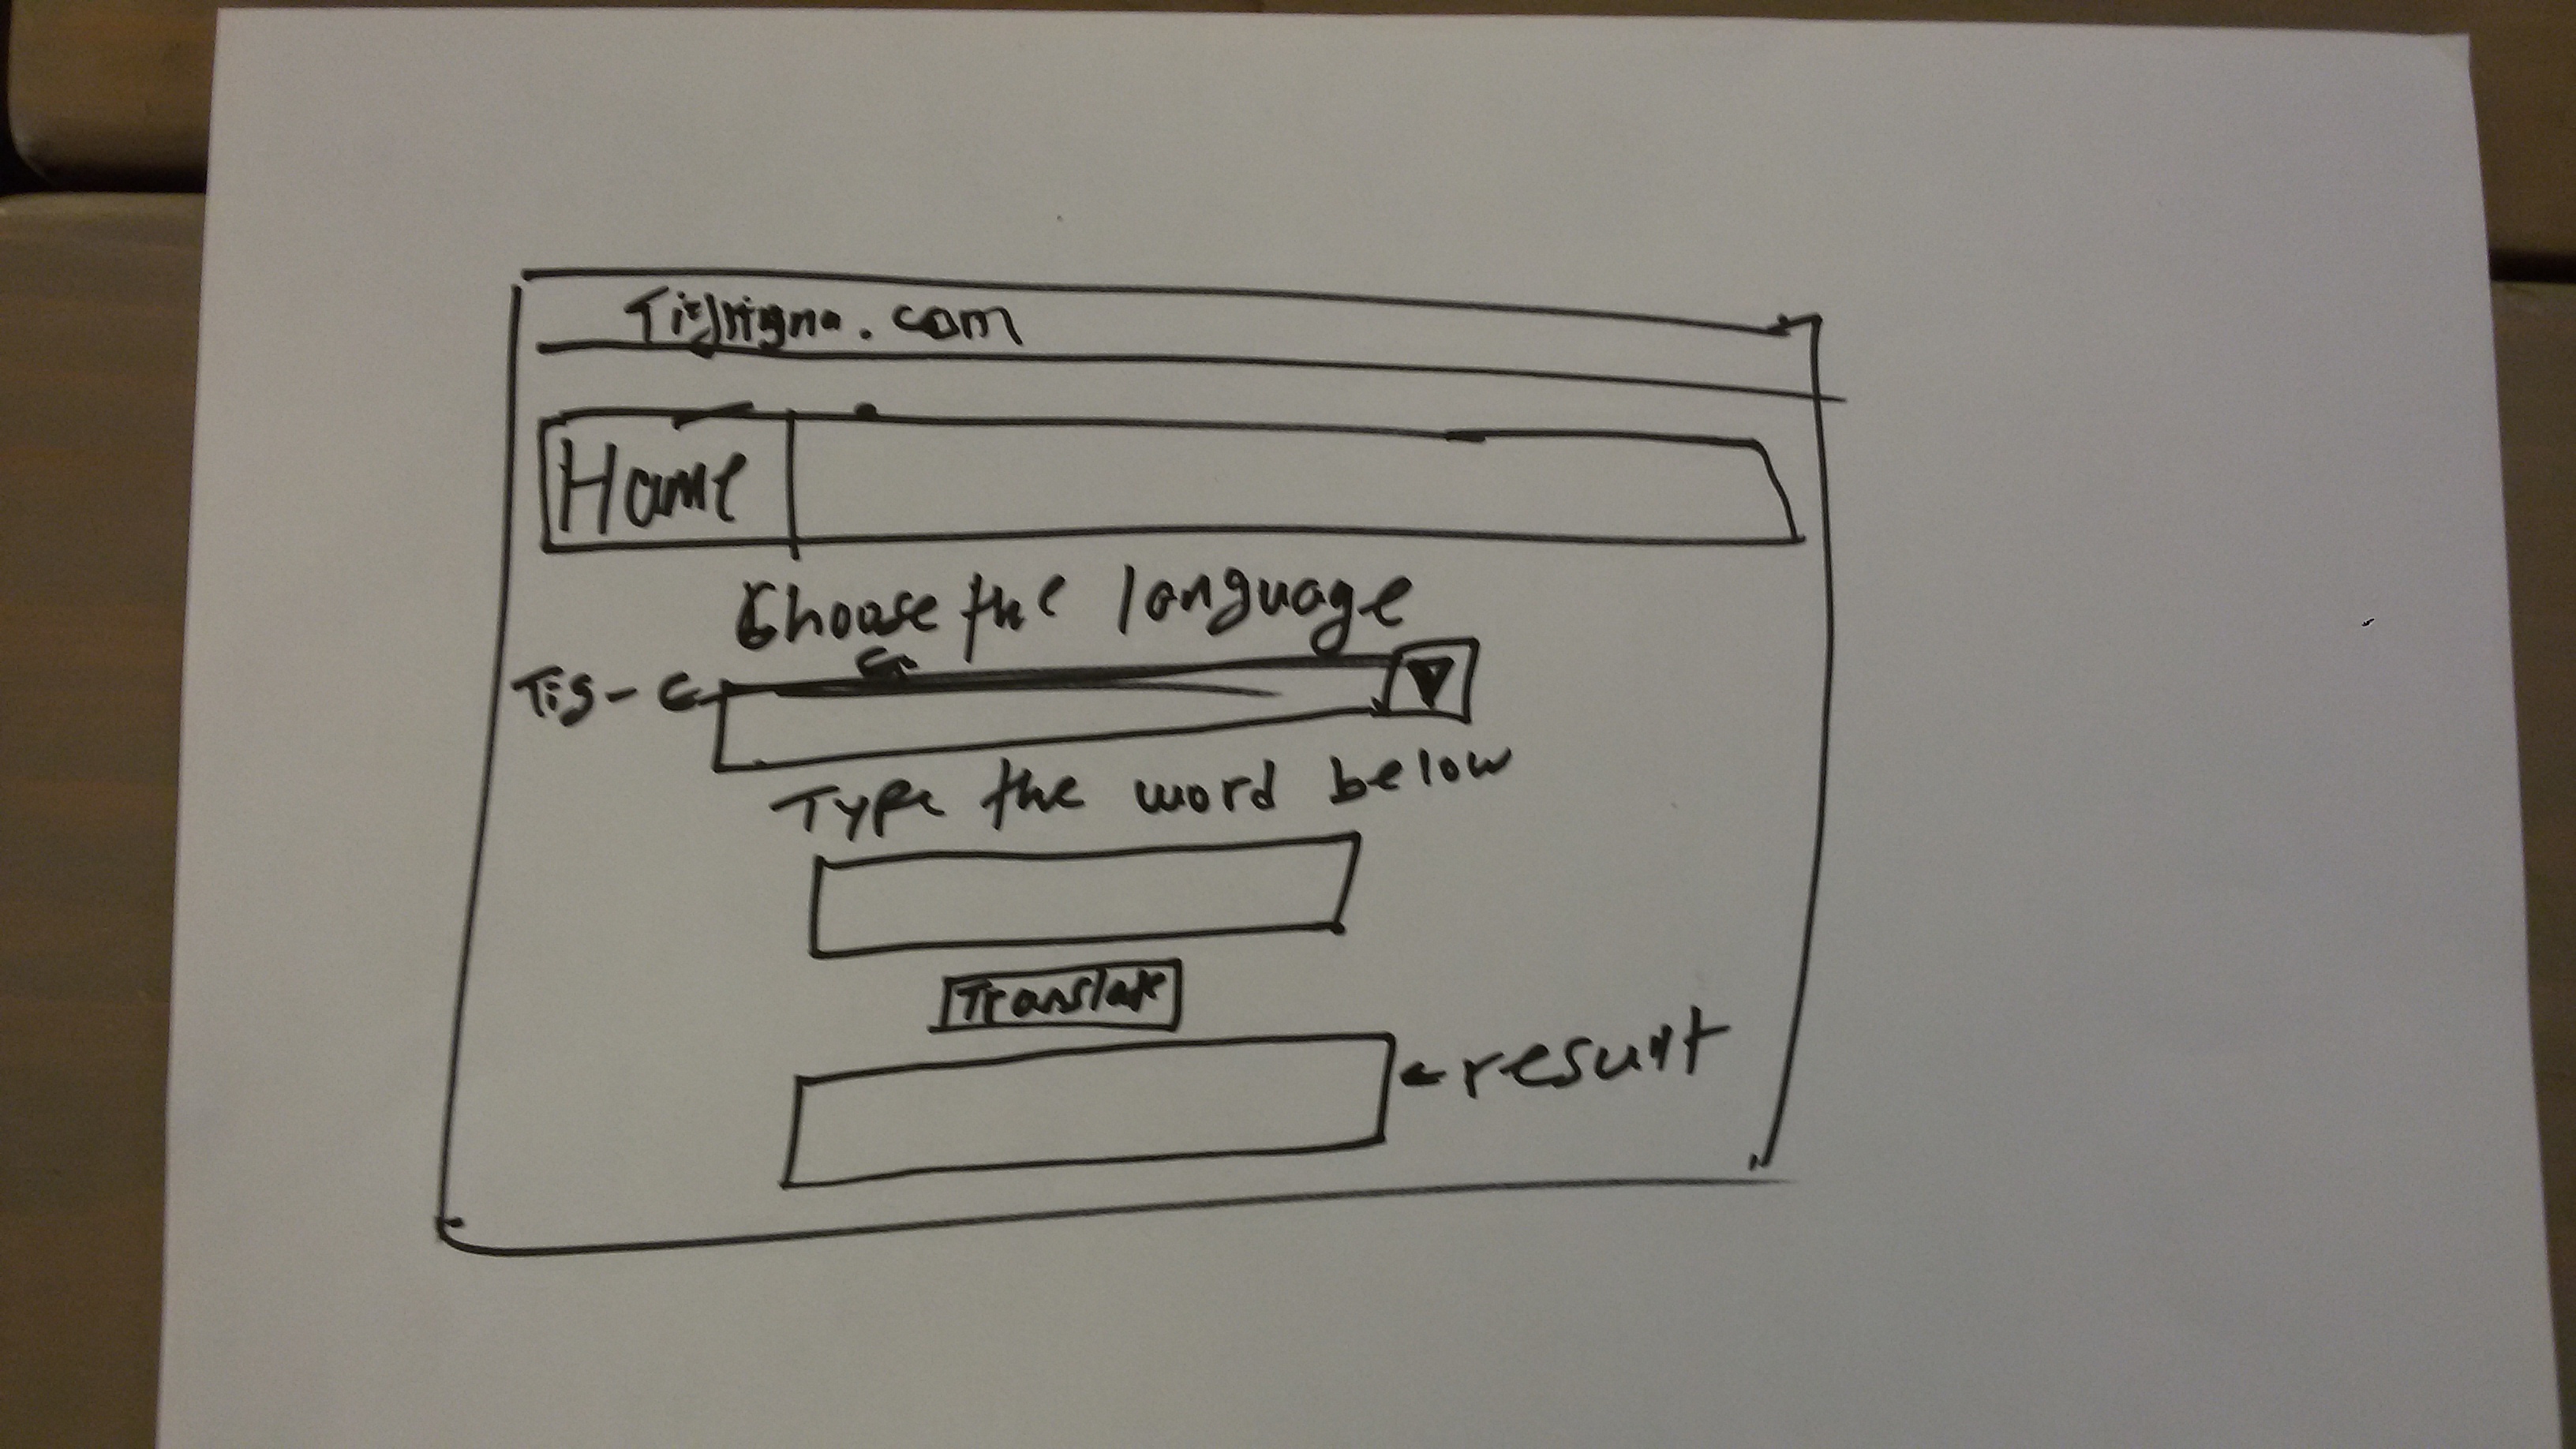 Tigrigna.com
Home
Choose the language
Tig-
Type the word below
Translate
result